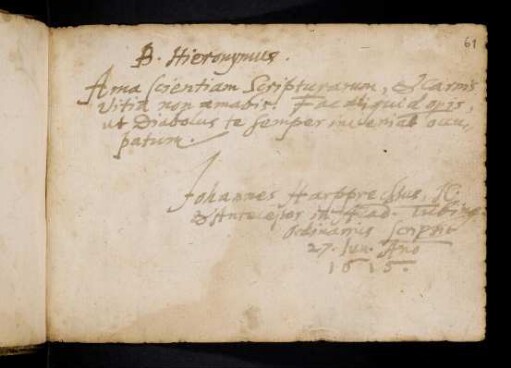 61
B. Hieronymus.
Ama scientiam Scripturarum, & carnis
vitia non amabis! Fac aliquid opis,
ut Diabolus te semper inveniat occu,
patum.
Johannes Harpprechtus,
& Antecessor in Acad. Tubing.
Ordinarius scripsit
27. Jun. Ano
1615.